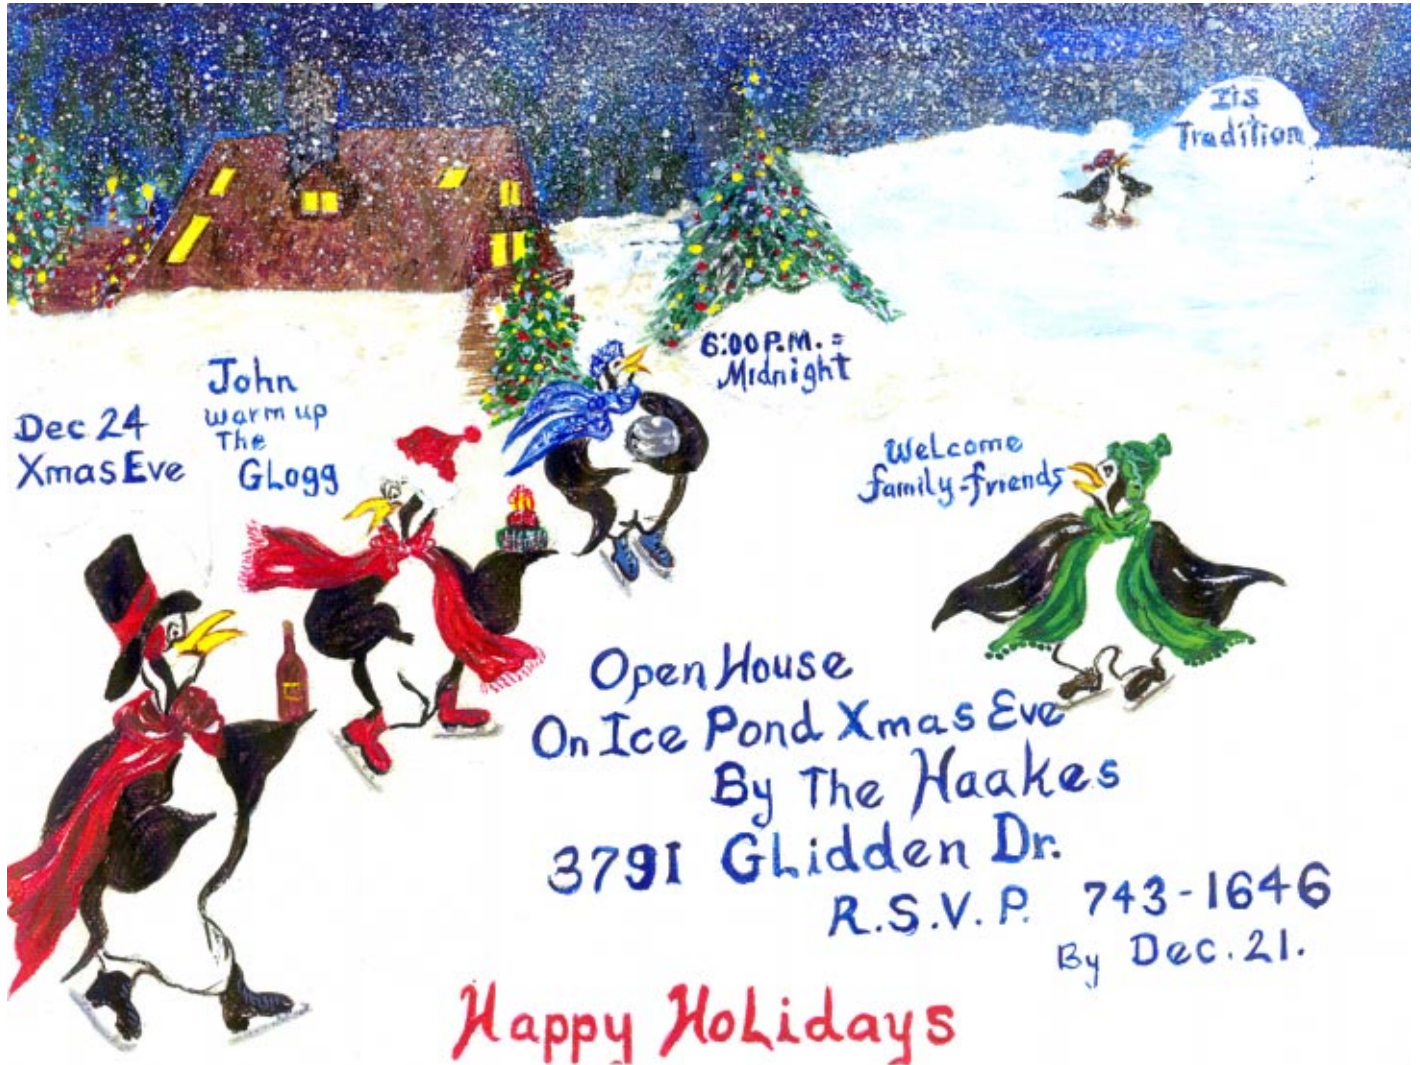 Its
Tradition
6:00 P.M. =
Midnight
John
warm up
The
GLogg
Dec 24
Xmas Eve
Welcome
family-friends
Open House
On Ice Pond Xmas Eve
By The Haakes
3791 GLidden Dr.
R.S.V.P. 743-1646
By Dec. 21.
Happy HoLidays